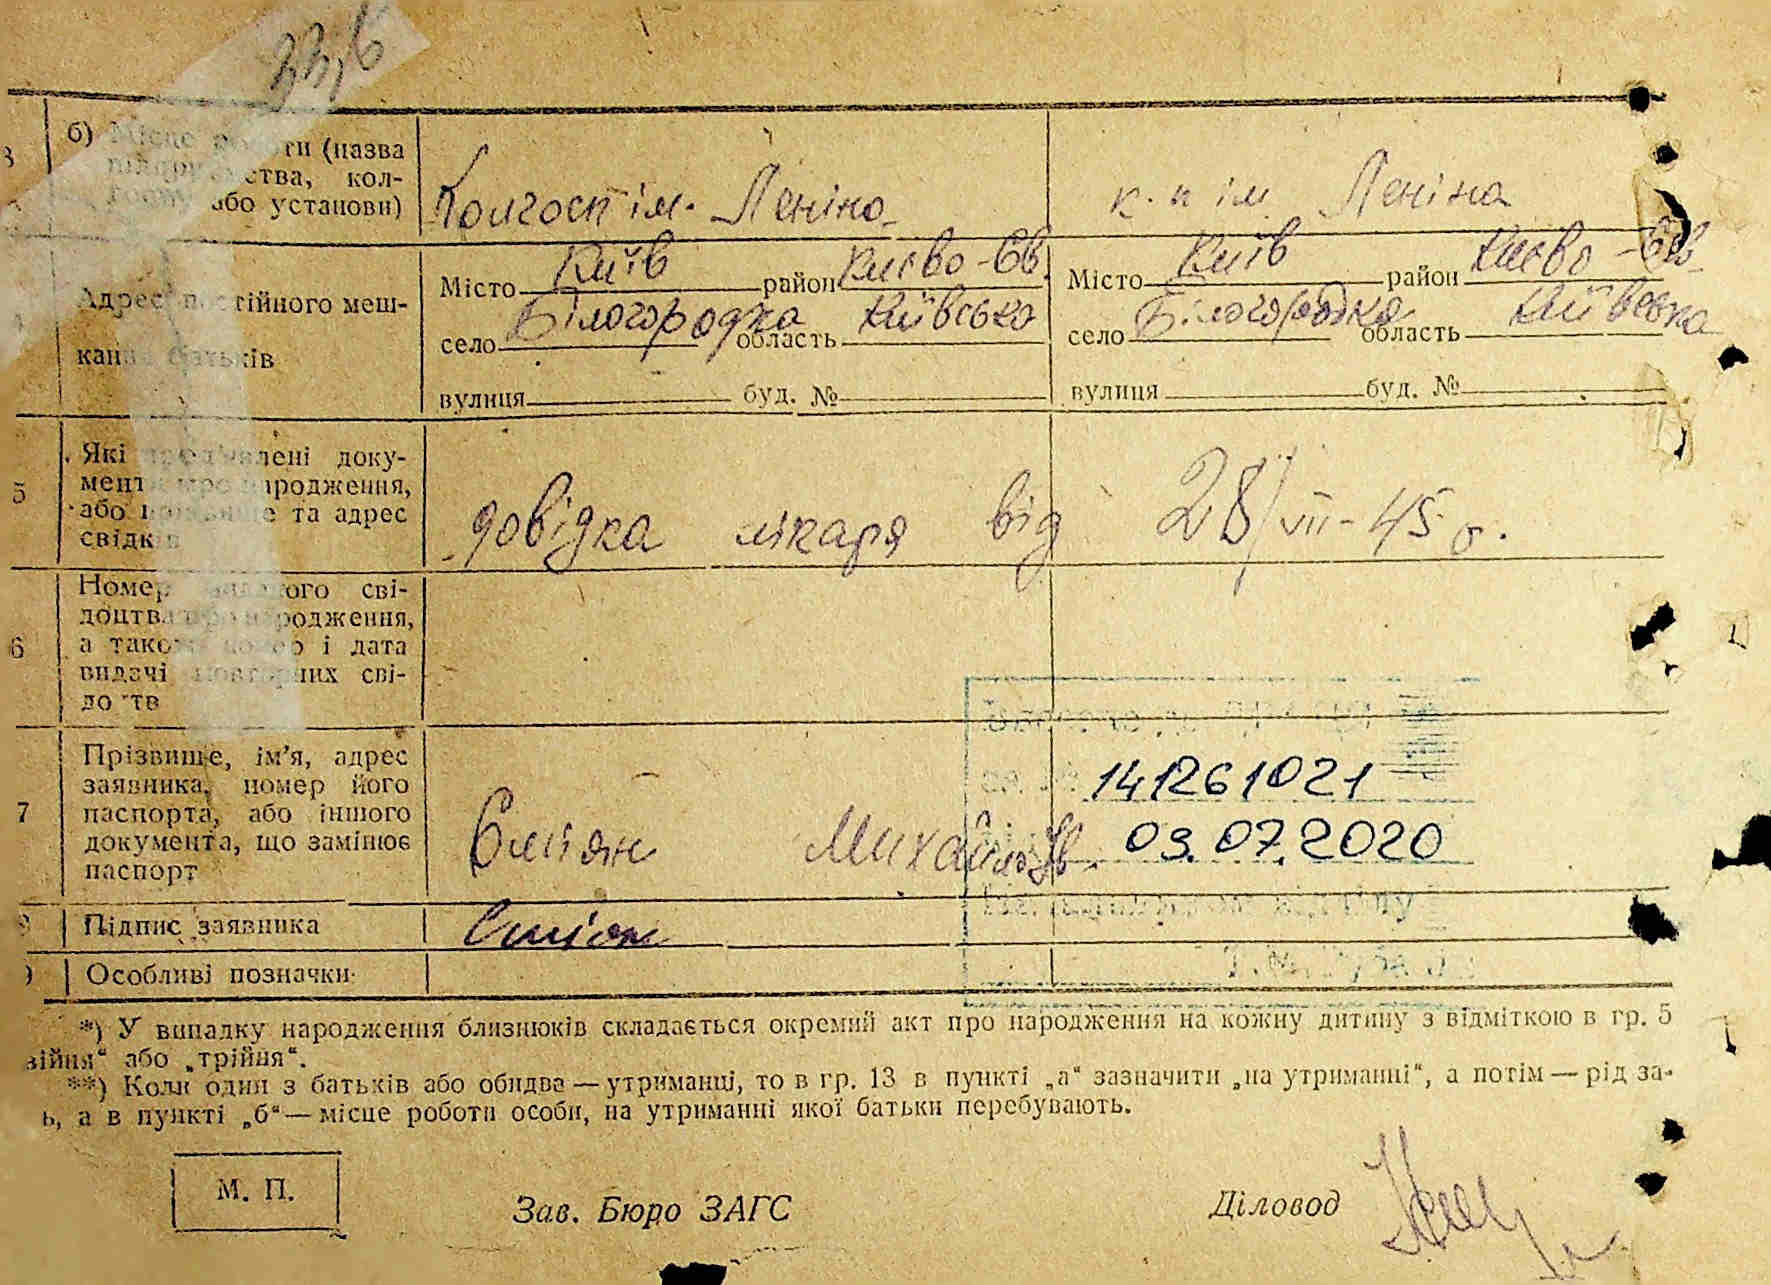 33,6
б) Місце роботи (назва
підприємства, кол-
госпу або установи)
Колгосп ім. Леніна
к. п ім Леніна
Адрес постійного меш-
кання батьків
Місто Київ район Києво-Св.
село Білогородка область Київська
вулиця буд. №
Місто Київ район Києво-Св.
село Білогородка область Київська
вулиця буд. №
5
Які пред'явлені доку-
менти про народження,
або прізвище та адрес
свідків
довідка лікаря від 28/VII-45 р.
6
Номер виданого сві-
доцтва про народження,
а також номер і дата
видачі повторних сві-
доцтв
7
Прізвище, ім'я, адрес
заявника, номер його
паспорта, або іншого
документа, що замінює
паспорт
Михайлов.
141261021
03.07.2020
Підпис заявника
Особливі позначки
*) У випадку народження близнюків складається окремий акт про народження на кожну дитину з відміткою в гр. 5
війня“ або „трійня“.
**) Коли один з батьків або обидва — утриманці, то в гр. 13 в пункті „а“ зазначити „на утриманні“, а потім — рід за-
ь, а в пункті „б“ — місце роботи особи, на утриманні якої батьки перебувають.
М. П.
Зав. Бюро ЗАГС
Діловод